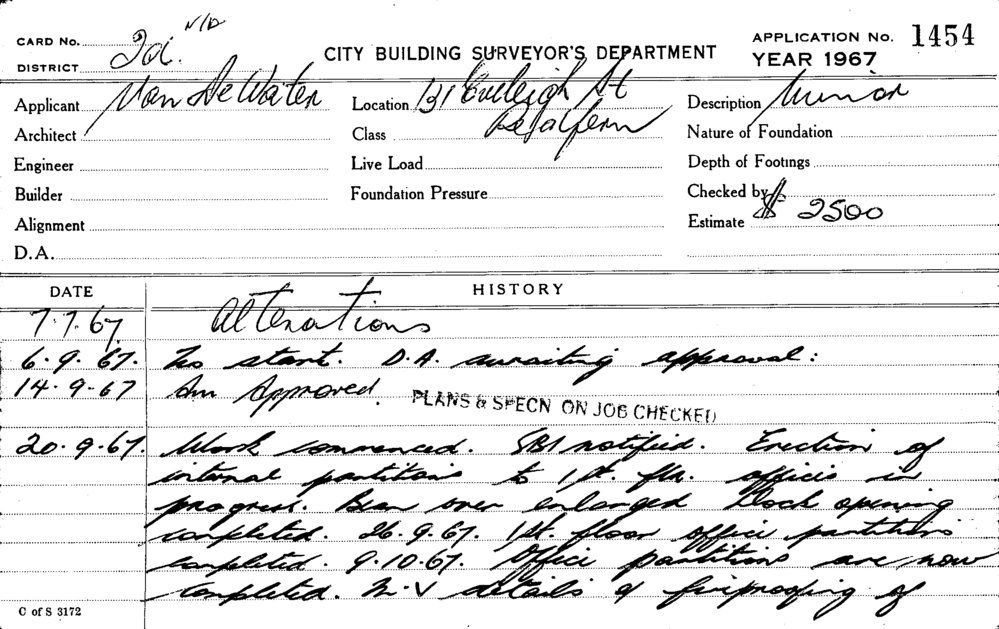 N/D
CARD No.
DISTRICT
CITY BUILDING SURVEYOR'S DEPARTMENT
APPLICATION No. 1454
YEAR 1967
Applicant Van De Water
Location 131 Eveleigh St
Redfern
Description Minor
Architect
Class
Nature of Foundation
Engineer
Live Load
Depth of Footings
Builder
Foundation Pressure
Checked by
Alignment
Estimate $ 2500
D.A.
DATE
HISTORY
7.7.67 Alterations
6.9.67. No start. D.A. awaiting approval:
14.9.67 Approved. PLANS & SPECN ON JOB CHECKED
20.9.67. Work commenced. SBI notified. Erection of
internal partitions to 1st. flr. offices in
progress. Beam over enlarged Dock opening
completed. 26.9.67. 1st. floor office partitions
completed. 9.10.67. Office partitions are now
completed. N.V details of fireproofing of
C of S 3172